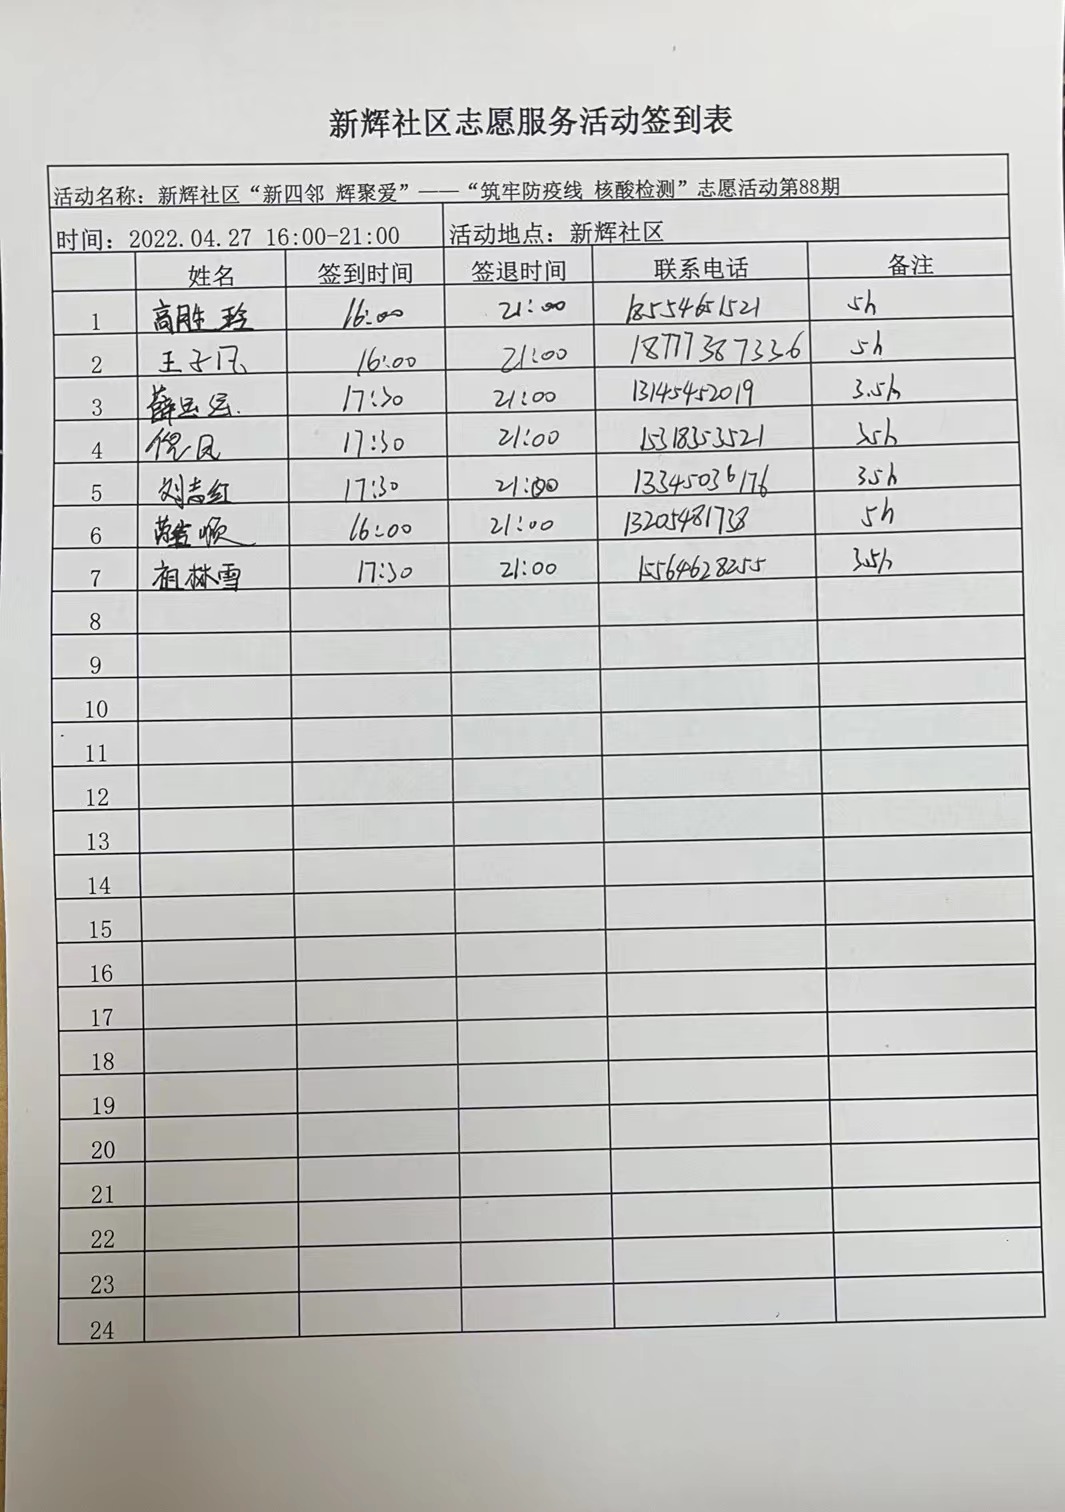 新辉社区志愿服务活动签到表
活动名称：新辉社区“新四邻 辉聚爱”——“筑牢防疫线 核酸检测”志愿活动第88期
时间：2022.04.27 16:00-21:00 活动地点：新辉社区
姓名 签到时间 签退时间 联系电话 备注
1 高胜玲 16:00 21:00 18554651521 5h
2 王子 16:00 21:00 18777387336 5h
3 薛 17:30 21:00 13145452019 3.5h
4 倪凤 17:30 21:00 15318353521 3.5h
5 刘志红 17:30 21:00 13345036176 3.5h
6 顺 16:00 21:00 13205481738 5h
7 祖林雪 17:30 21:00 15564628255 3.5h
8
9
10
11
12
13
14
15
16
17
18
19
20
21
22
23
24